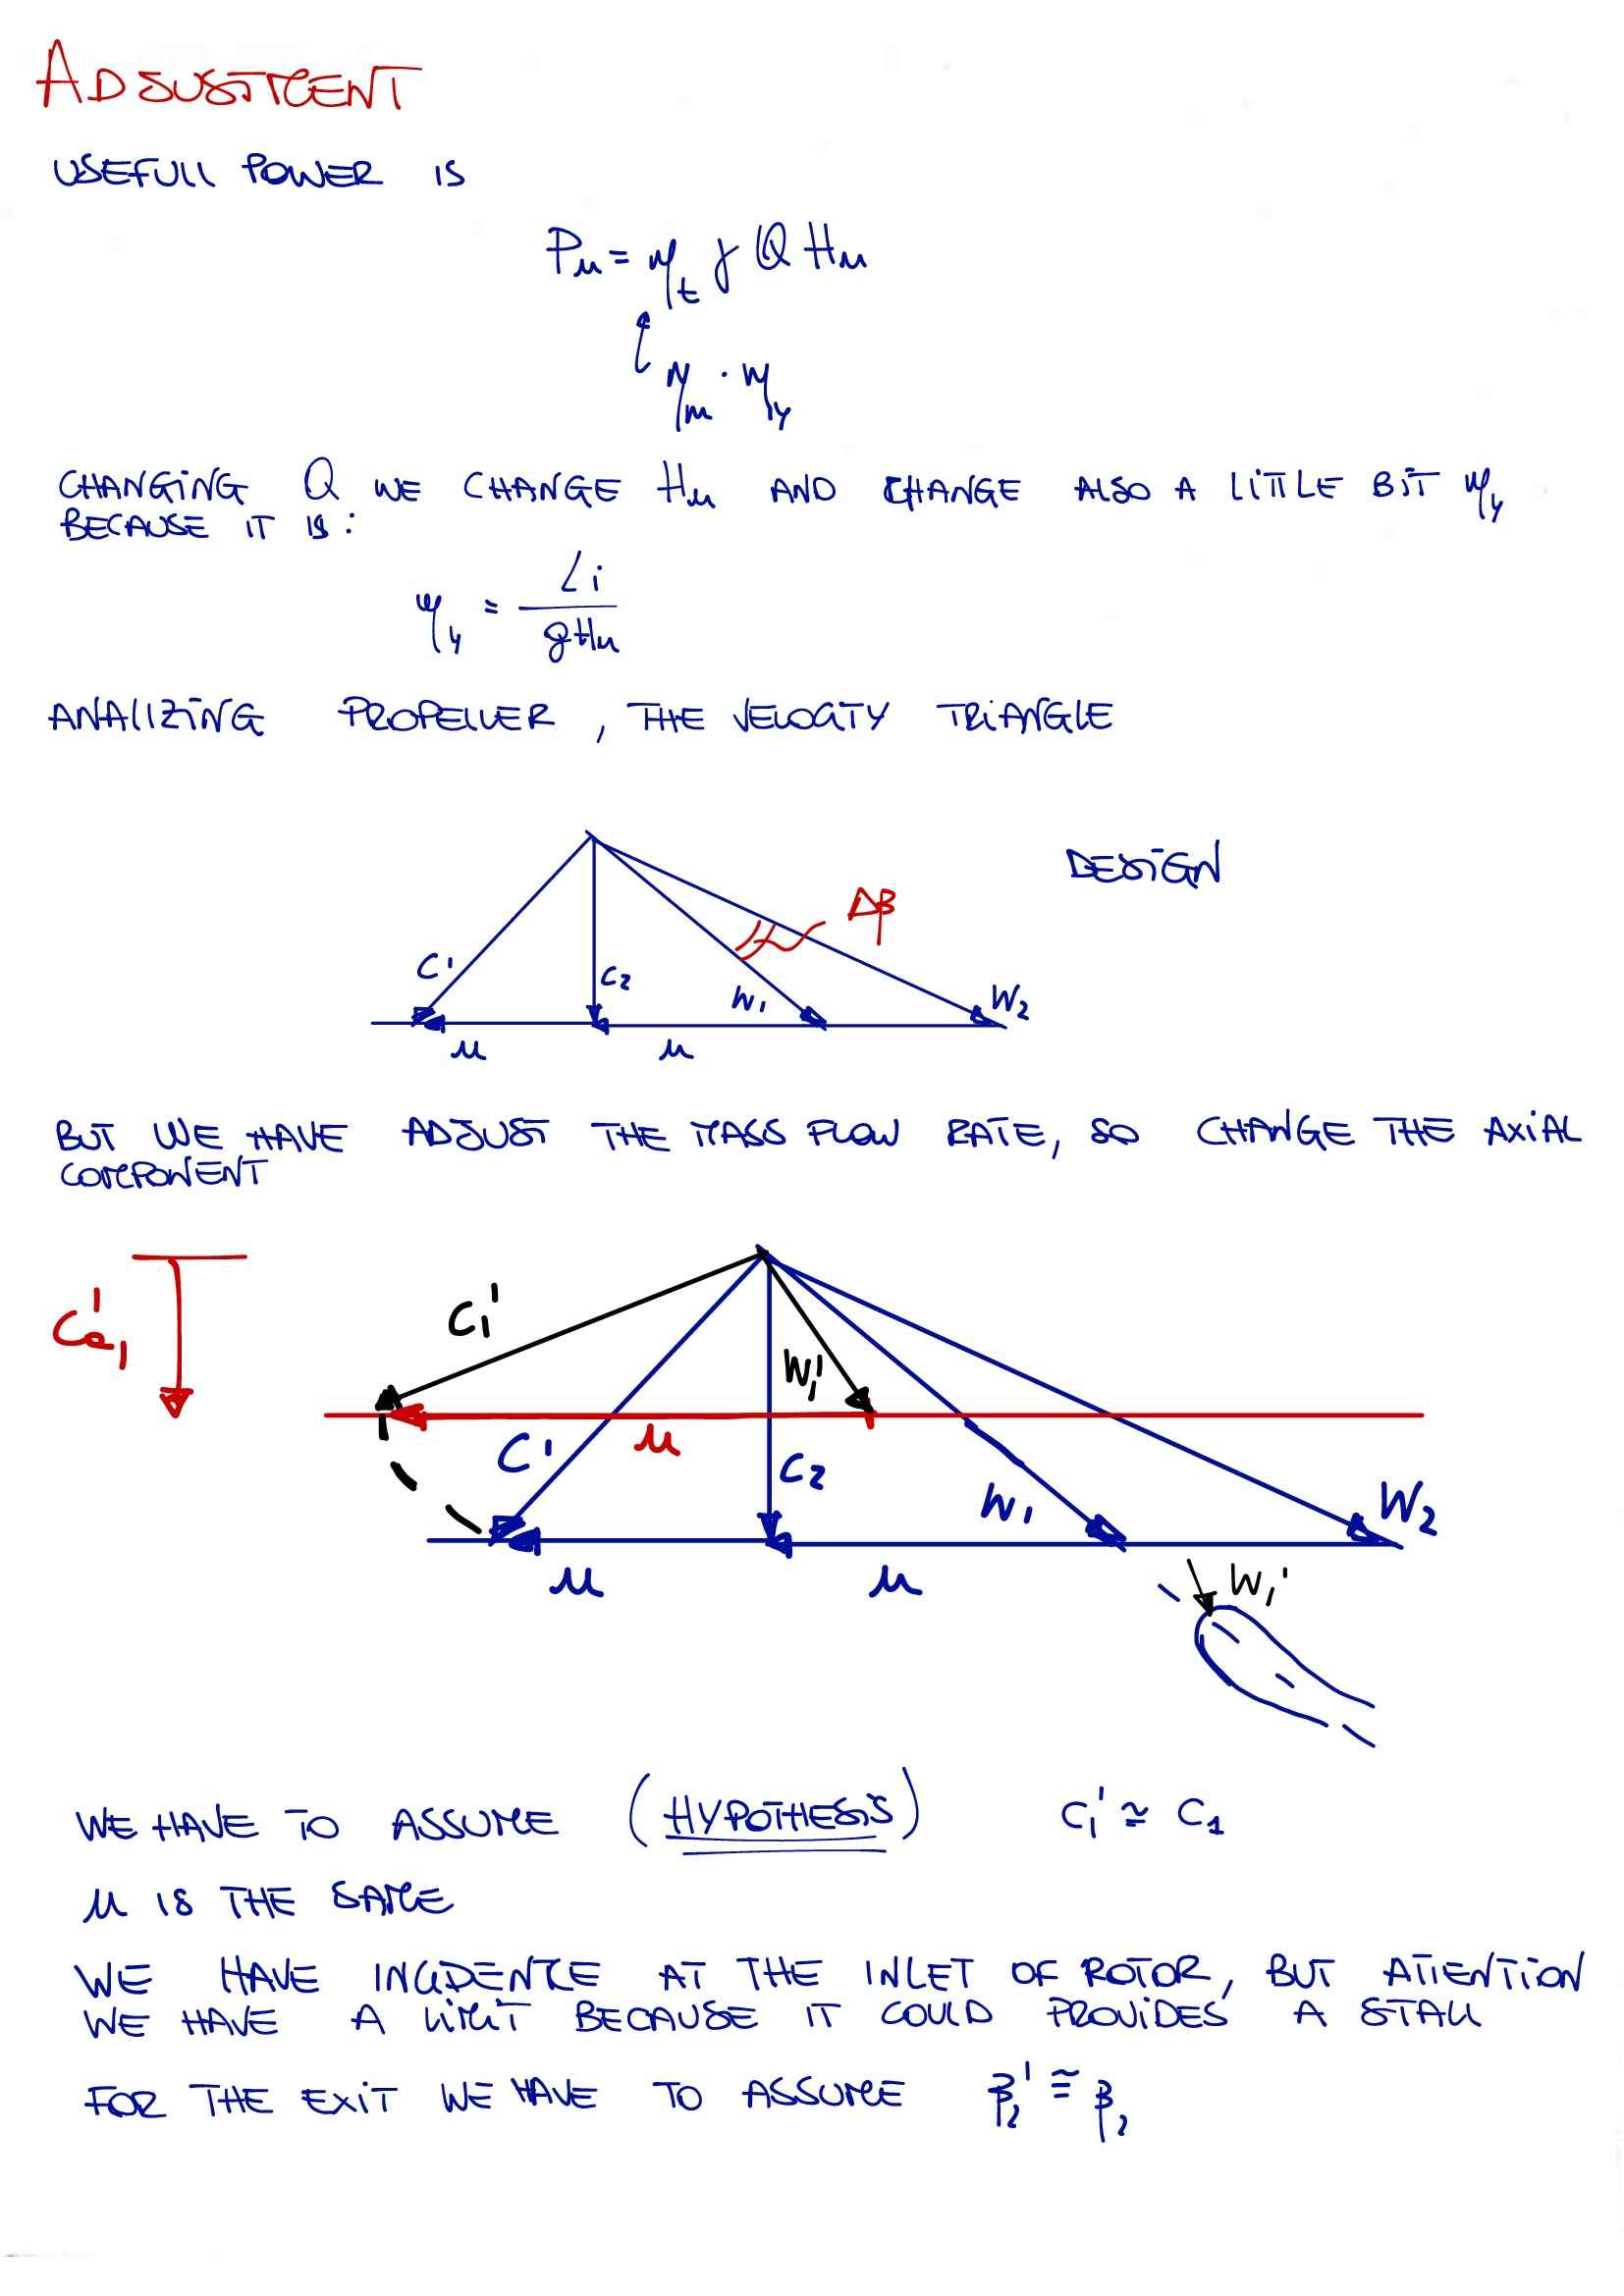 ADJUSTMENT
USEFULL POWER IS
Pu = ηt γ Q Hu
ηm · ηy
CHANGING Q WE CHANGE Hu AND CHANGE ALSO A LITTLE BIT ηy
BECAUSE IT IS:
ηy = Li / gHu
ANALIZING PROPELLER, THE VELOCITY TRIANGLE
DESIGN
Δβ
C1
C2
W1
W2
u
u
BUT WE HAVE ADJUST THE MASS FLOW RATE, SO CHANGE THE AXIAL
COMPONENT
C1'
Ca1'
W1'
u
C1
C2
W1
W2
u
u
W1'
WE HAVE TO ASSUME (HYPOTHESIS) C1' ≅ C1
u IS THE SAME
WE HAVE INCIDENCE AT THE INLET OF ROTOR, BUT ATTENTION
WE HAVE A LIMIT BECAUSE IT COULD PROVIDES A STALL
FOR THE EXIT WE HAVE TO ASSUME β2' ≅ β2